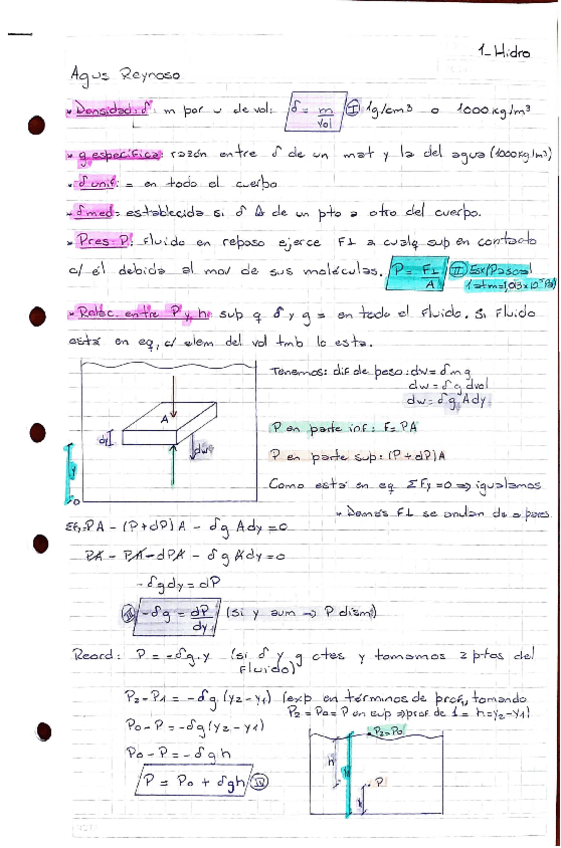 1_Hidro
Agus Reynoso
• Densidad: δ: m por u de vol: δ = m/Vol (I) 1g/cm³ o 1000 kg/m³
• g específica: razón entre δ de un mat y la del agua (1000kg/m³)
• δ unif: = en todo el cuerpo
• δ med = establecida si δ Δ de un pto a otro del cuerpo.
• Pres P: Fluido en reposo ejerce F⊥ a cualq sup en contacto
c/ él debida al mov de sus moléculas. P = F⊥/A (II)
• Relac. entre P y h: sup q δ y g = en todo el Fluido. Si Fluido
está en eq, c/ elem del vol tmb lo esta.
Tenemos: dif de peso: dw = δ m g
dw = δ g dvol
dw = δ g A dy
A
dy
dw
y
0
P en parte inf: F = PA
P en parte sup: (P + dP)A
Como está en eq ΣFy = 0 ⇒ igualamos
• Demás F⊥ se anulan de a pares.
ΣFy: PA - (P + dP) A - δ g A dy = 0
PA - PA - dPA - δ g A dy = 0
- δ g dy = dP
(III) - δ g = dP/dy (si y aum → P dism)
Reord: P = - δ g . y (si δ y g ctes y tomamos 2 ptos del
Fluido)
P₂ - P₁ = - δ g (y₂ - y₁) (exp en términos de prof, tomando
P₂ = P₀ = P en sup ⇒ prof de 1 = h = y₂ - y₁)
P₀ - P = - δ g (y₂ - y₁)
P₀ - P = - δ g h
P = P₀ + δ g h (IV)
P₂ = P₀
h
P